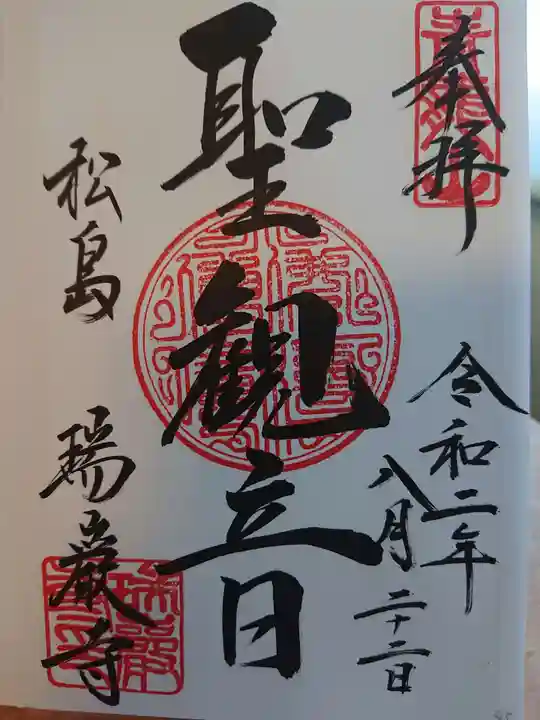 奉拝
令和二年
八月二十二日
聖観音
松島 瑞巌寺